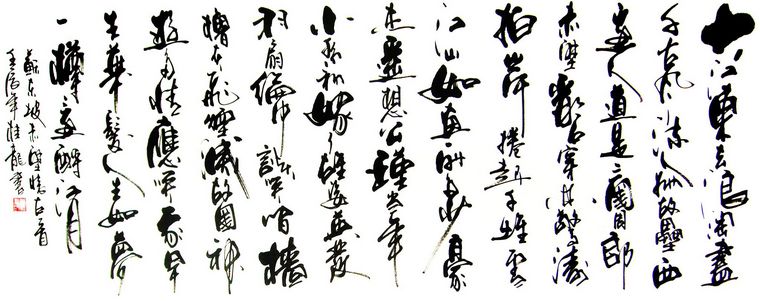 大江東去浪淘盡
千古風流人物故壘西
邊人道是三國周郎
赤壁亂石穿空驚濤
拍岸捲起千堆雪
江山如畫一時多少豪
杰遥想公瑾當年
小喬初嫁了雄姿英發
羽扇綸巾談笑間檣
櫓灰飛煙滅故國神
遊多情應笑我早
生華髮人生如夢
一樽還酹江月
蘇東坡赤壁懷古一首
年 龍書